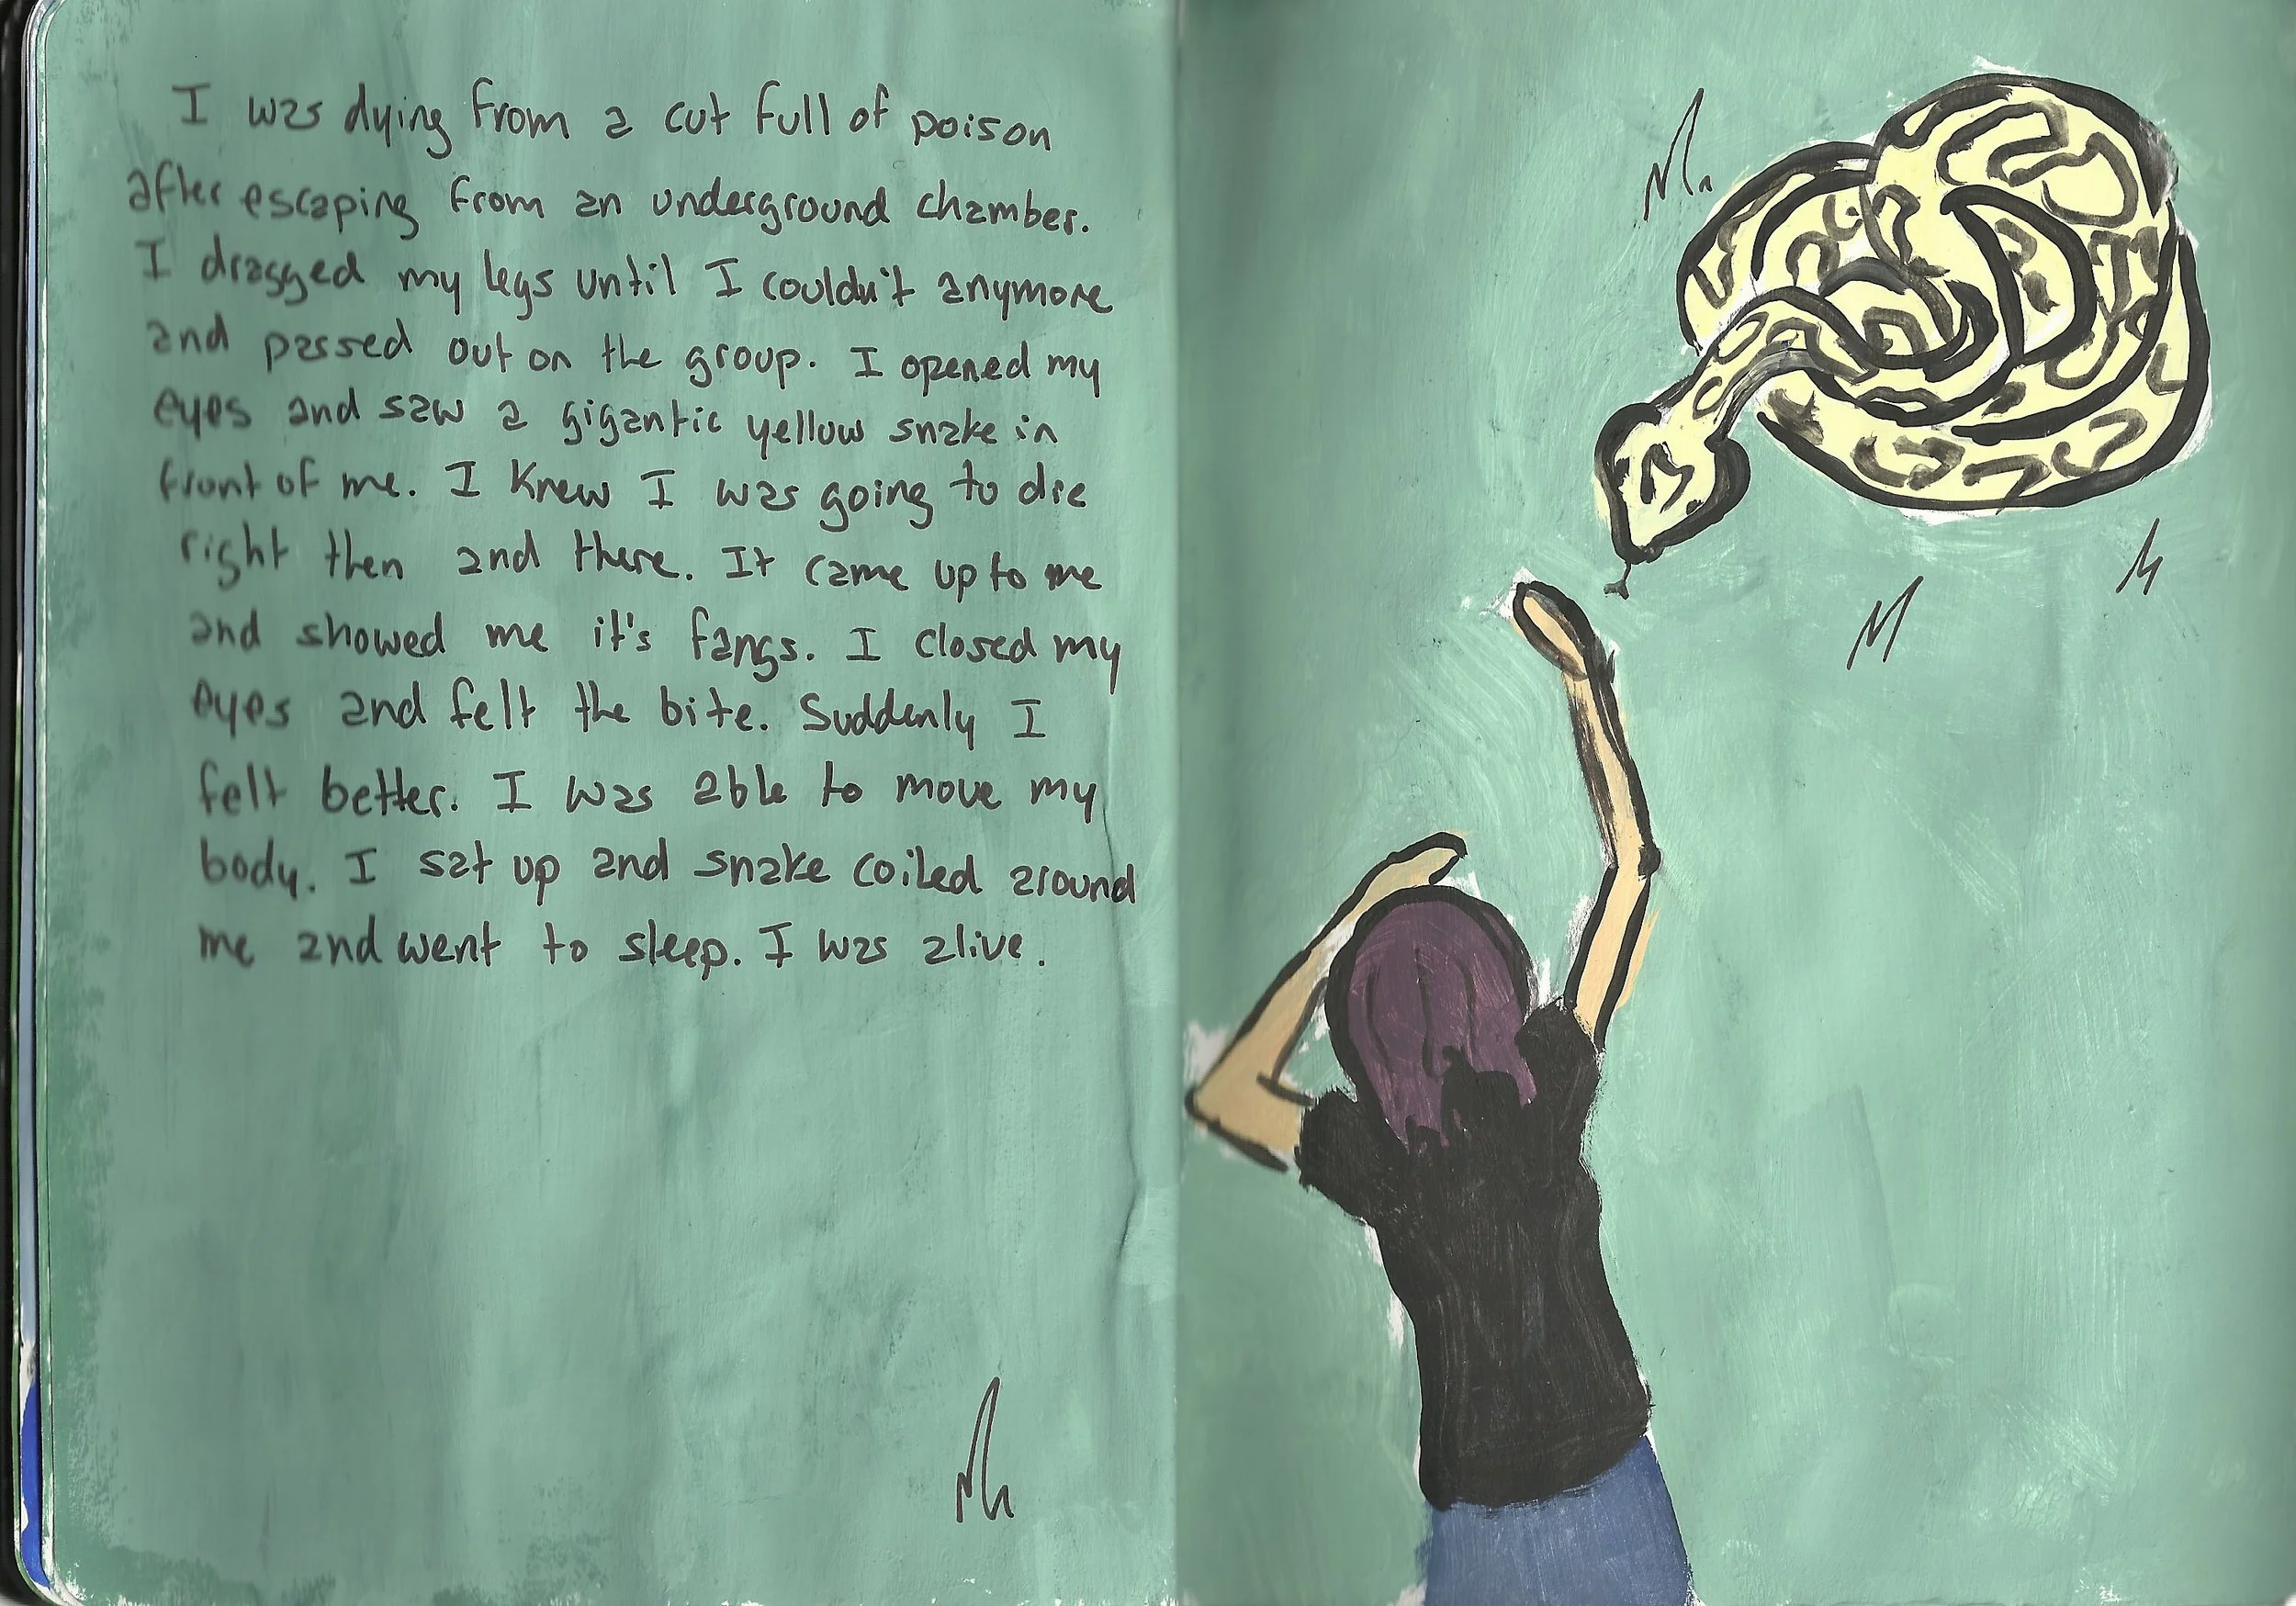 I was dying from a cut full of poison
after escaping from an underground chamber.
I dragged my legs until I couldn't anymore
and passed out on the group. I opened my
eyes and saw a gigantic yellow snake in
front of me. I knew I was going to die
right then and there. It came up to me
and showed me it's fangs. I closed my
eyes and felt the bite. Suddenly I
felt better. I was able to move my
body. I sat up and snake coiled around
me and went to sleep. I was alive.